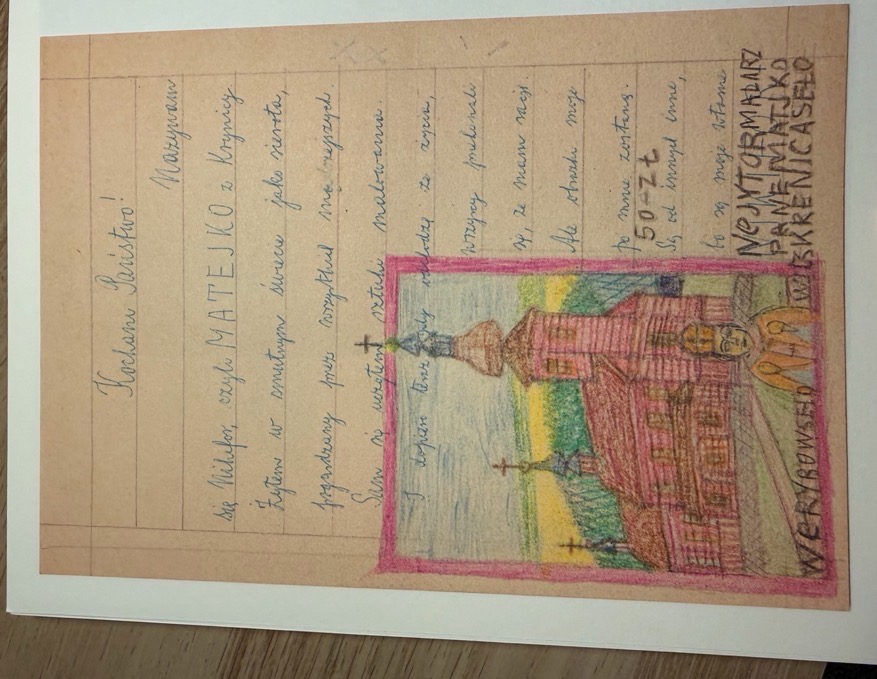 Kochani Państwo!
Nazywam
się Nikifor, czyli MATEJKO z Krynicy
Żyłem w smutnym świecie jako sierota,
pogardzany przez wszystkich
Sam się uczyłem sztuki malowania.
I dopiero teraz gdy odchodzę ze życia,
wszyscy
się, że mam
Ale obrazki moje
po mnie zostaną.
50-ZŁ
Są od innych inne,
bo są moje własne
NEJYTORMALARZ
PANEMATJKO
WERYROWSEŁO WIJSKRENICASEŁO